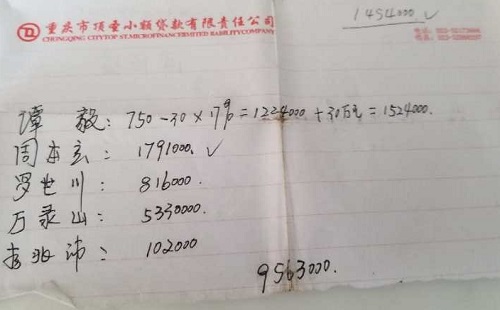 重庆市顶圣小额贷款有限责任公司
CHONGQING CITYTOP ST.MICROFINANCE LIMITED LIABILITY COMPANY
1494000 ✓
谭毅：750-30×17%=1224000+30万元=1524000.
周本玄：1791000. ✓
罗世川：816000.
万录山：5330000.
李兆沛：102000
9563000.